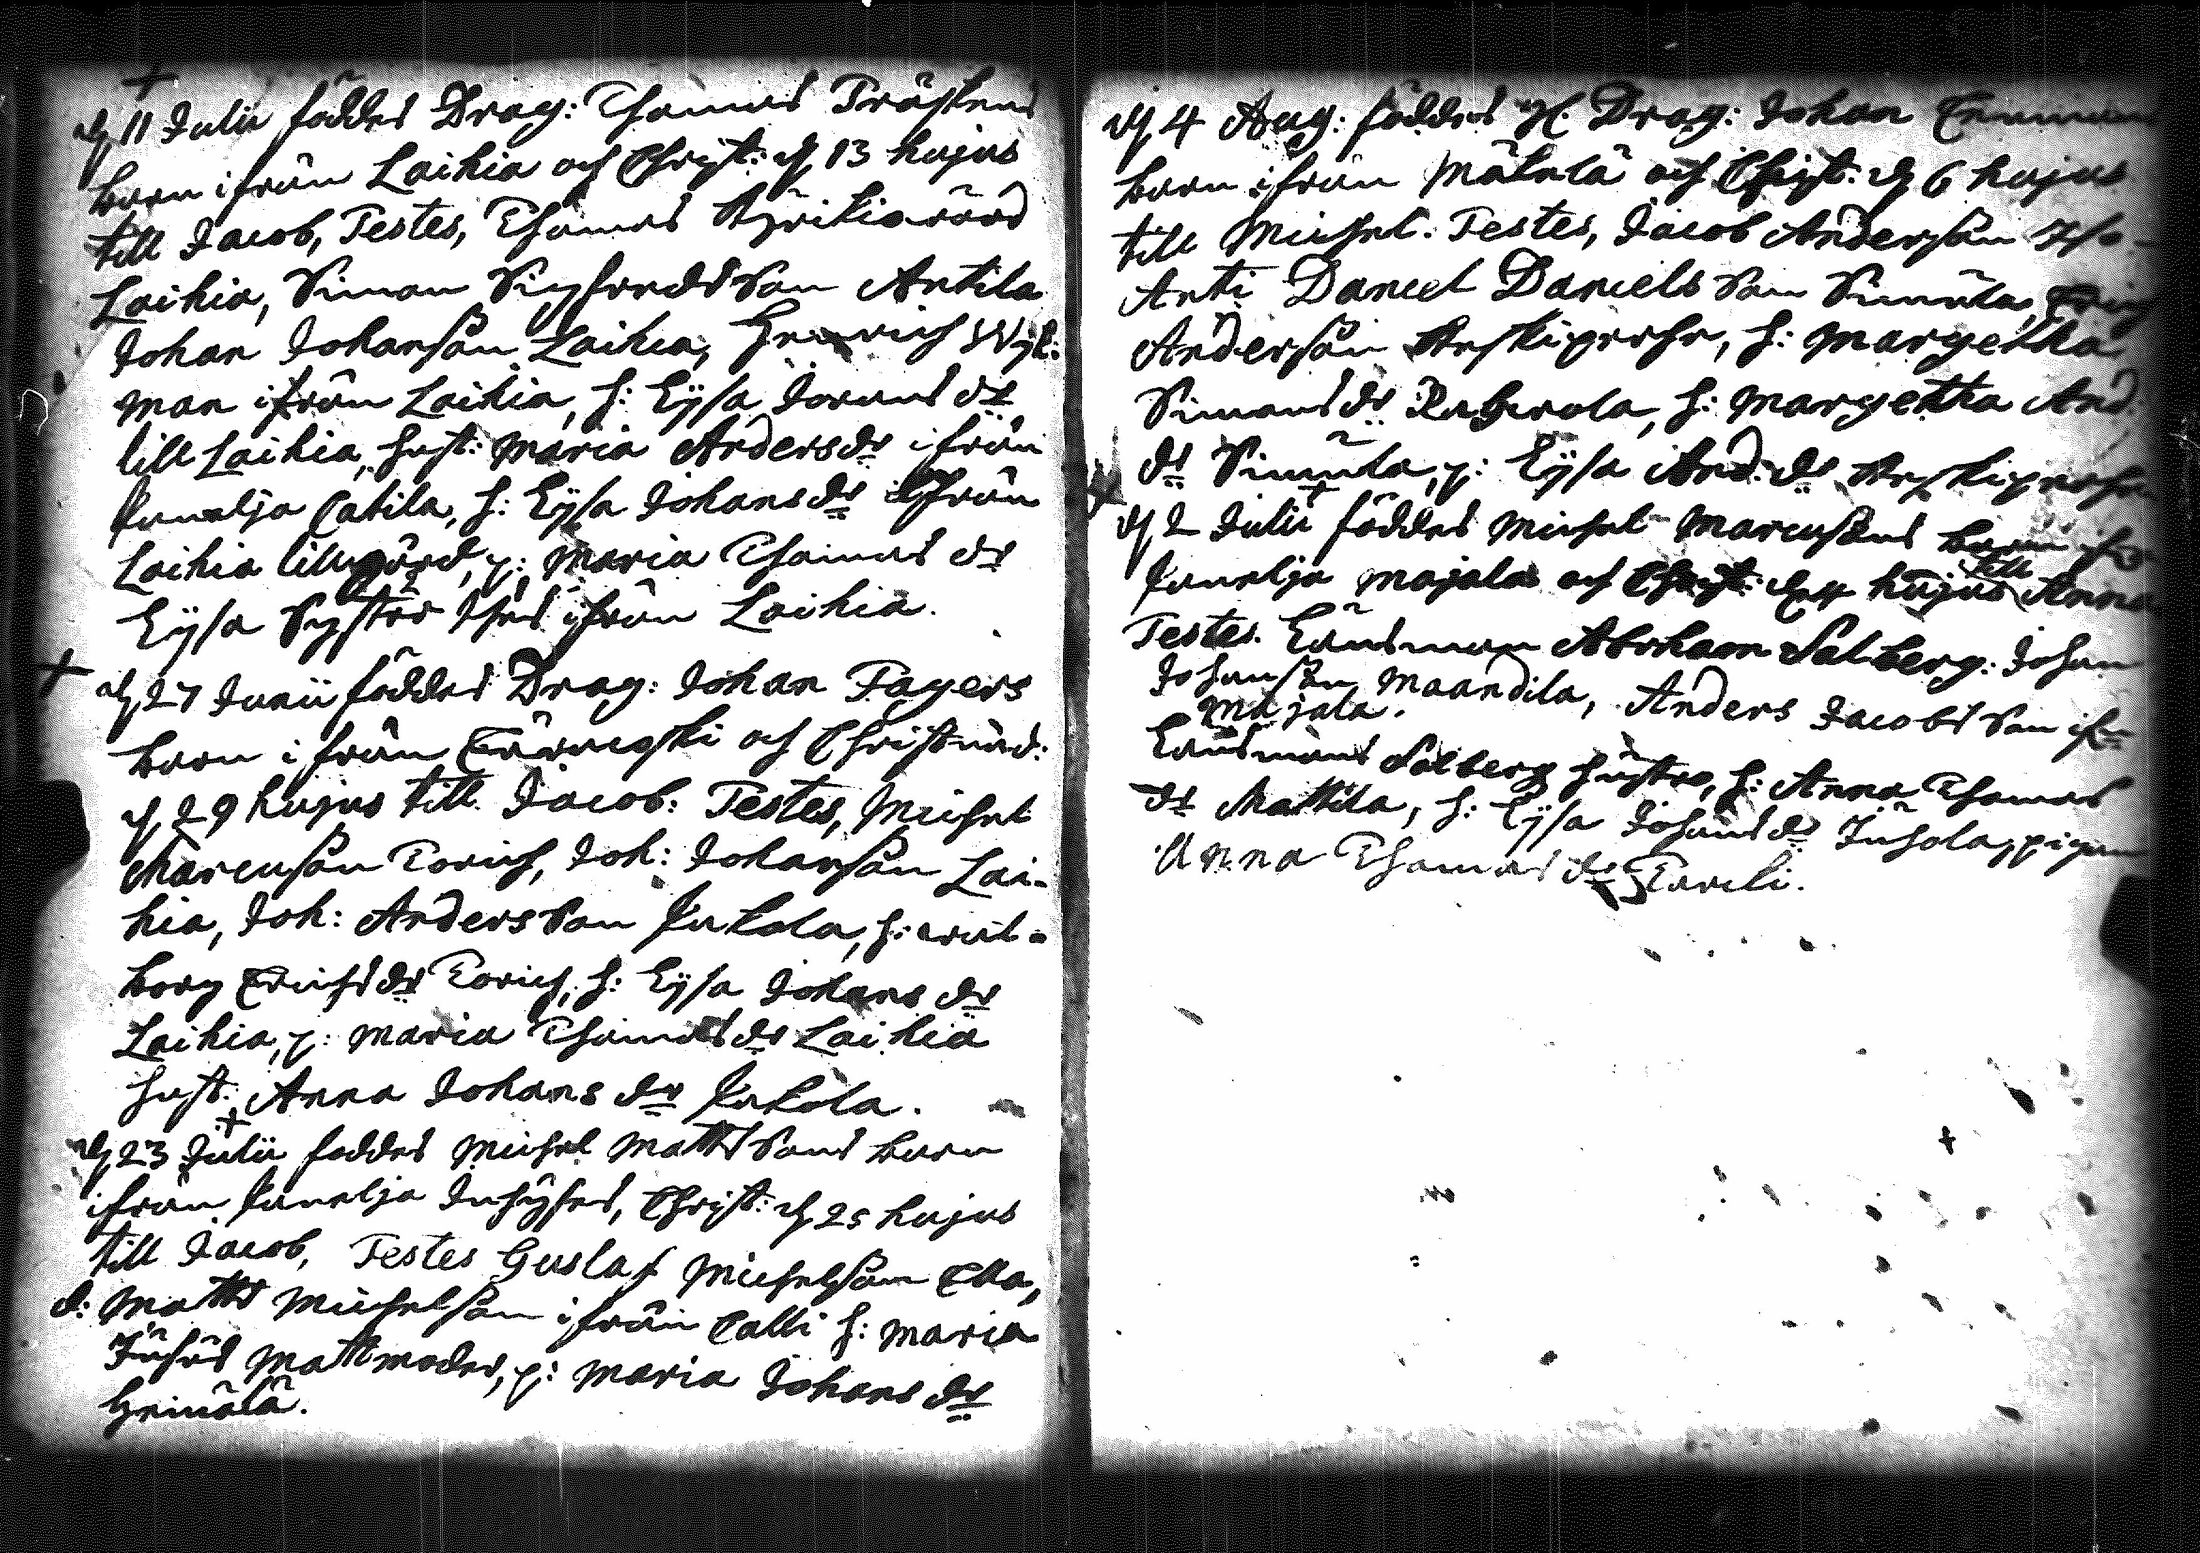 d 11 Julii föddes Drag: Thomas Träskens
barn ifrån Laihia och Christ: d 13 hujus
till Jacob, Testes, Thomas
Laihia, Simon Sigfredsson Antila
Johan Johansån Laihia, Henrich Wyk:
man ifrån Laihia, h: Lysa Jorans dr
lill Laihia, hust: Maria Anders dr ifrån
Punelja Catila, h: Lysa Johans dr ifrån
Laihia lillgård, p: Maria Thomas dr
Lysa Syster ifrån Laihia.
d 27 Junii föddes Drag: Johan Fagers
barn ifrån och Christnad:
d 29 hujus till Jacob: Testes, Michel
Marcusån Torich, Joh: Johansån Lai-
hia, Joh: Andersson Jukola, h: wal-
borg Erichs dr Torich, h: Lysa Johans dr
Laihia, p: Maria Thomas dr Laihia
hust: Anna Johans dr Jukola.
d 23 Julii foddes Michel Mattssons barn
ifrån Punelja Christ: d 25 hujus
till Jacob, Testes Gustaf Michelsån Ella,
d: Matts Michelsån ifrån Calli h: Maria
Mattmoder, p: Maria Johans dr
Heinälä.
d 4 Aug: föddes Drag: Johan
barn ifrån Mäkelä och Christ: d 6 hujus
till Michel. Testes, Jacob Andersån
Anti Daniel Daniels son Simula,
Andersån h: Margetha
Simons dr h: Margetha And.
dr Simula, p: Lysa And: dr
d 2 Julii föddes Michel Marcusåns barn
Punelja Majala och Christ: d 4 hujus till Anna
Testes. Länsman Abraham Salberg: Johan
Johansån Maandila, Anders Jacobs son ifrn
Majala.
Länsmans Salberg hustro, h: Anna Thomas
dr Mattila, h: Lysa Johans dr pigan
Anna Thomas dr